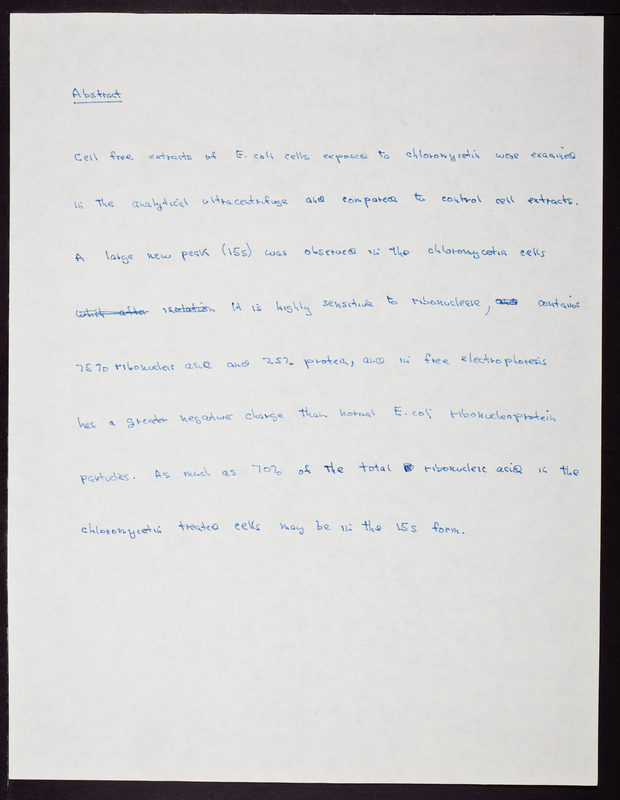 Abstract
Cell free extracts of E. coli cells exposed to chloromycetin were examined
in the analytical ultracentrifuge and compared to control cell extracts.
A large new peak (15s) was observed in the chloromycetin cells
which after isolation it is highly sensitive to ribonuclease, and contains
75% ribonucleic acid and 25% protein, and in free electrophoresis
has a greater negative charge than normal E. coli ribonucleoprotein
particles. As much as 70% of the total ribonucleic acid in the
chloromycetin treated cells may be in the 15s form.